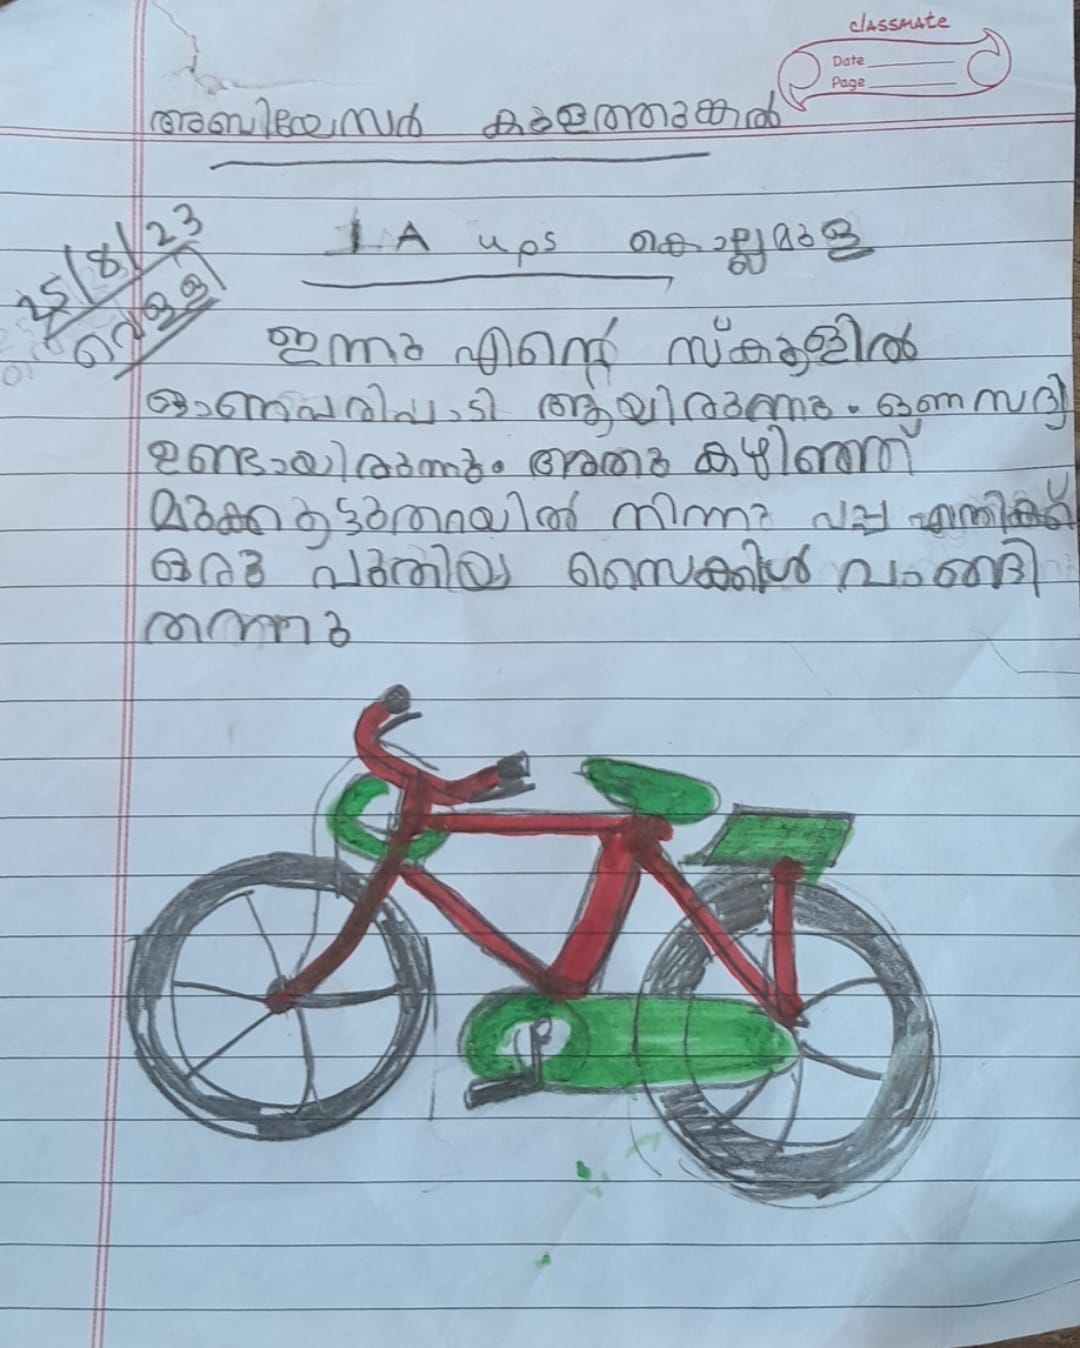 classmate
Date
Page
അബിയേസർ കുളത്തുങ്കൽ
1 A ups കൊല്ലമുള
25/8/23
വെള്ളി
ഇന്നു എന്റെ സ്കൂളിൽ
ഓണപരിപാടി ആയിരുന്നു. ഓണസദ്യ
ഉണ്ടായിരുന്നു. അതു കഴിഞ്ഞ്
മുക്കൂട്ടുതറയിൽ നിന്നു പപ്പ എനിക്ക്
ഒരു പുതിയ സൈക്കിൾ വാങ്ങി
തന്നു